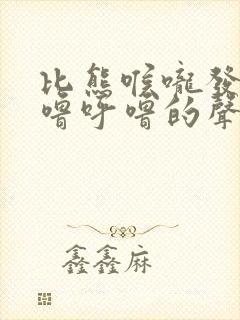 比熊喉嚨發
嚕呼嚕的聲
鑫鑫麻